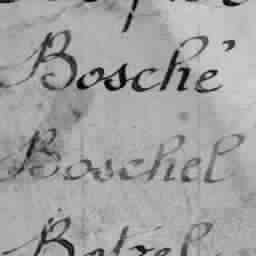 Bosché
Boschel
Botzel